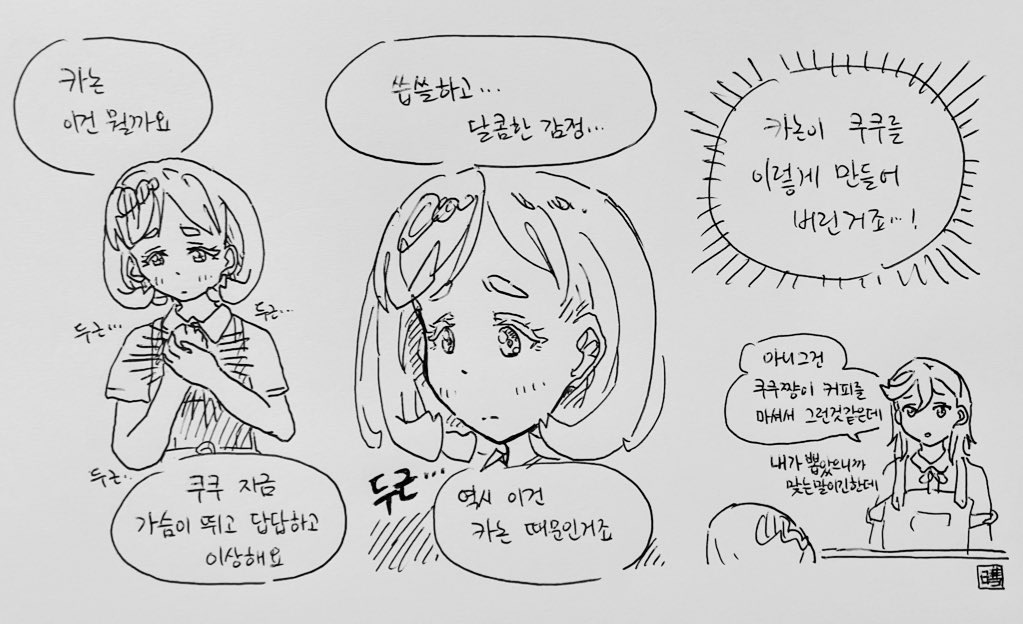 카논
이건 뭘까요
두근…
두근…
두근…
쿠쿠 지금
가슴이 뛰고 답답하고
이상해요
씁쓸하고…
달콤한 감정…
두근…
역시 이건
카논 때문인거죠
카논이 쿠쿠를
이렇게 만들어
버린거죠…!
아니그건
쿠쿠쨩이 커피를
마셔서 그런것같은데
내가 뽑았으니까
맞는말이긴한데